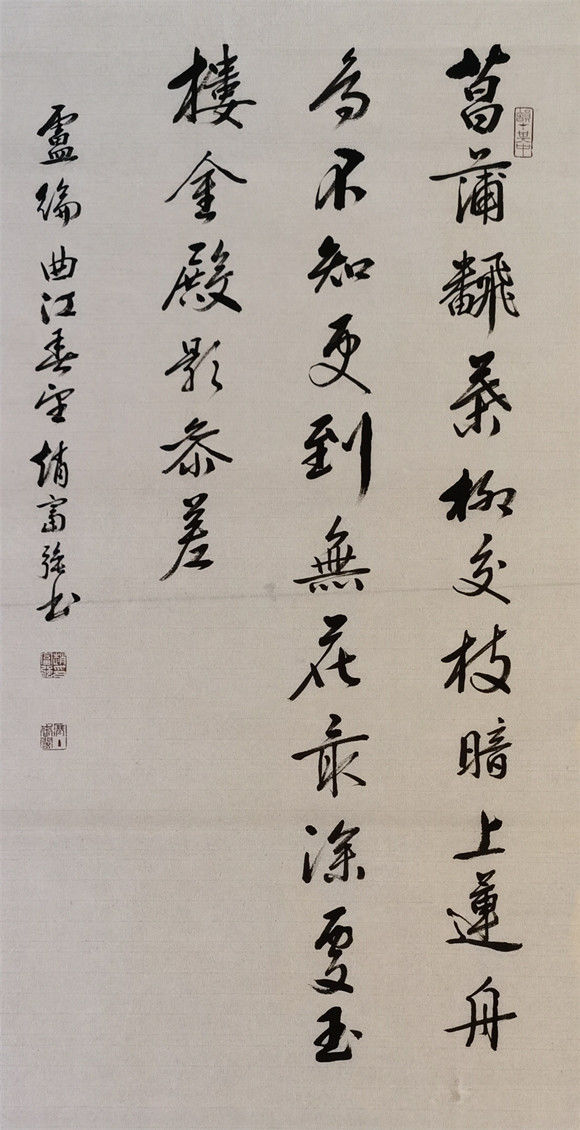 菖蒲飜葉柳交枝暗上蓮舟
鳥不知更到無花最深處玉
樓金殿影參差
盧綸曲江春望趙富強书